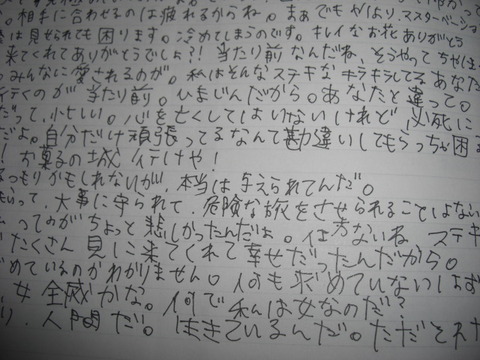 。相手に合わせるのは疲れるからね。まぁでもやはり、マスターベーショ
は見せられても困ります。冷めてしまうのです。キレイなお花ありがとう
来てくれてありがとうでしょ?!当たり前なんだね、そうやってちやほ
みんなに愛されるのが。私はそんなステキなキラキラしてるあなた
のが当たり前。ひまじんだから。あなたと違って。
だって、忙しい。心を亡くしてはいないけれど必死に
だよ。自分だけ頑張ってるなんて勘違いしてもらっちゃ困る
!お菓子の城
つもりかもしれないが、本当は与えられてんだ。
らって、大事に守られて、危険な旅をさせられることはない
ってのがちょっと悲しかったんだよ。仕方ないね ステキ
たくさん見に来てくれて幸せだったんだから。
めているのかわかりません。何も求めていないはず
女全滅かな。何で私は女なのだ?
り、人間だ。生きているんだ。ただそれだ